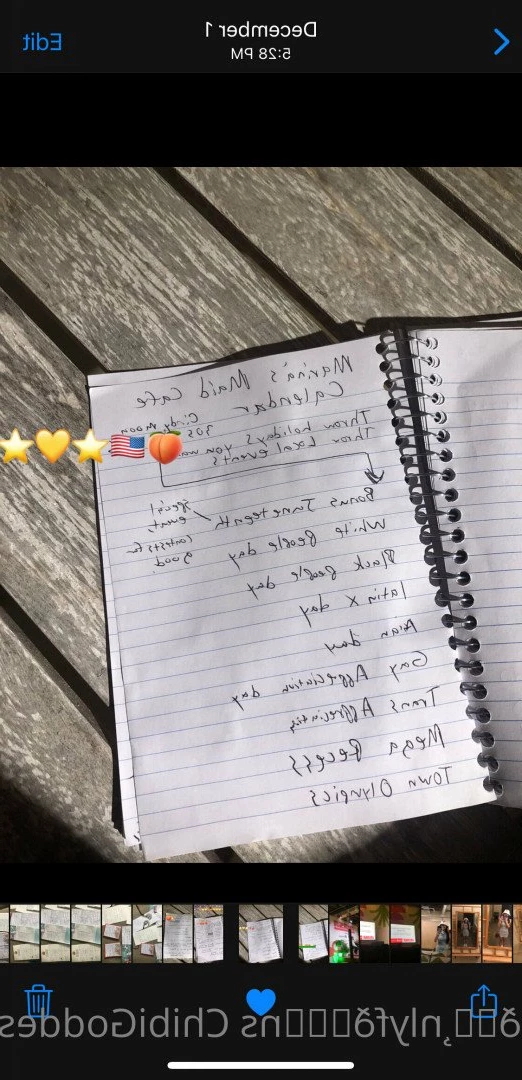 December 1
5:28 PM
Edit
Marina's Maid Cafe
Calendar
Cindy Moon
305
Throw holidays you
Throw Local events
Bonus Juneteenth
Special
event
contests for
good
White People day
Black people day
latin x day
Asian day
Gay Appreciation day
Trans Appreciation
Mega Recess
Town Olympics
ChibiGoddess